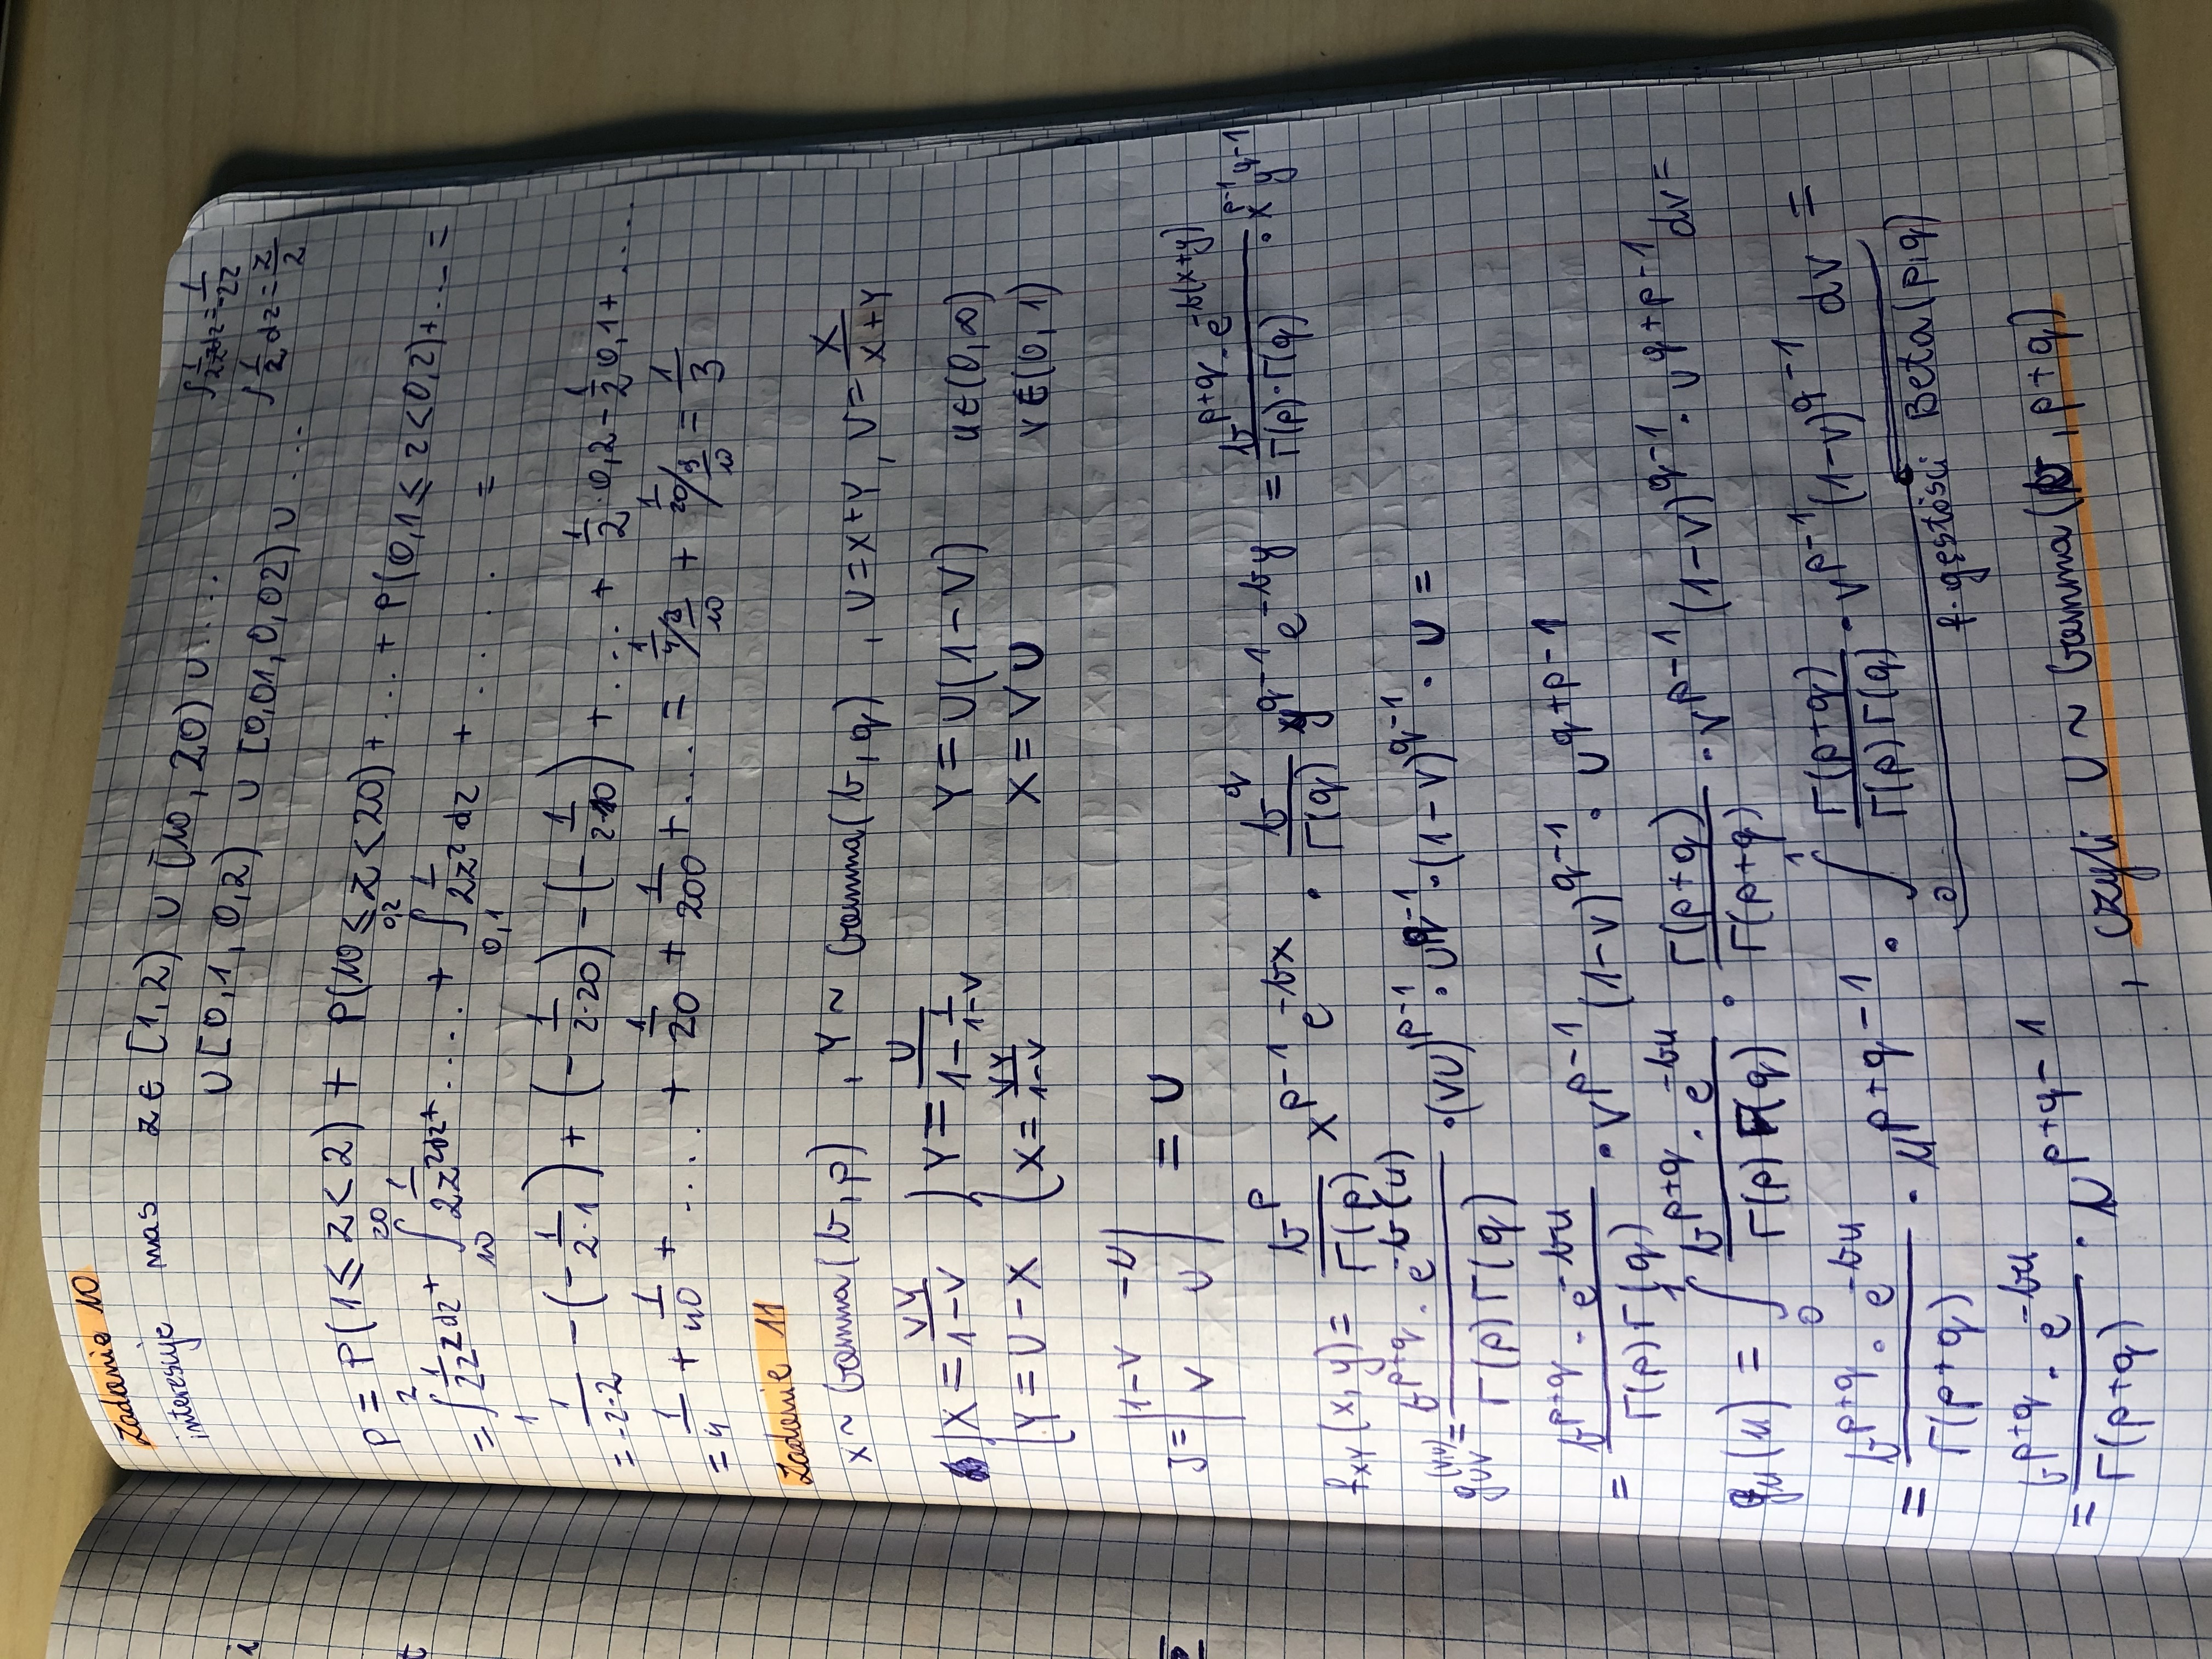 Zadanie 10
interesuje nas z ∈ [1,2) ∪ [10, 20) ∪ ....
∪ [0,1, 0,2) ∪ [0,01, 0,02) ∪ ...
∫ 1/2z² dz = 1/-2z
∫ 1/2 dz = z/2
P = P(1 ≤ z < 2) + P(10 ≤ z < 20) + ... + P(0,1 ≤ z < 0,2) + ... =
= ∫_1^2 1/2z² dz + ∫_10^20 1/2z² dz + ..... + ∫_0,1^0,2 1/2z² dz + ..... =
= 1/-2·2 - (- 1/2·1) + (- 1/2·20) - (- 1/2·10) + ... + 1/2 · 0,2 - 1/2 0,1 + ....
= 1/4 + 1/40 + .... + 1/20 + 1/200 + ... = 1/4 / 9/10 + 1/20 / 9/10 = 1/3
Zadanie 11
X ~ Gamma(b, p) , Y ~ Gamma(b, q) , U = X+Y, V = X/X+Y
{ X = VY/1-V { Y = U/1 - 1/1-V Y = U(1-V) u ∈ (0, ∞)
{ Y = U - X { X = VY/1-V X = VU v ∈ (0, 1)
J = | 1-V -U |
| V U | = U
f_XY (x, y) = b^p/Γ(p) x^p-1 e^-bx · b^q/Γ(q) y^q-1 e^-by = b^p+q · e^-b(x+y)/Γ(p)·Γ(q) · x^p-1 y^q-1
g_UV^(v,u) = b^p+q · e^-b(u)/Γ(p)Γ(q) · (VU)^p-1 · U^q-1 · (1-V)^q-1 · U =
= b^p+q · e^-bu/Γ(p)Γ(q) · V^p-1 (1-V)^q-1 · U^q+p-1
g_u(u) = ∫_0^1 b^p+q · e^-bu/Γ(p)Γ(q) · Γ(p+q)/Γ(p+q) · V^p-1 (1-V)^q-1 · U^q+p-1 dv =
= b^p+q · e^-bu/Γ(p+q) · u^p+q-1 · ∫_0^1 Γ(p+q)/Γ(p)Γ(q) · V^p-1 (1-V)^q-1 dv =
f. gęstości Beta(p,q)
= b^p+q · e^-bu/Γ(p+q) · u^p+q-1 , czyli U ~ Gamma(b, p+q)